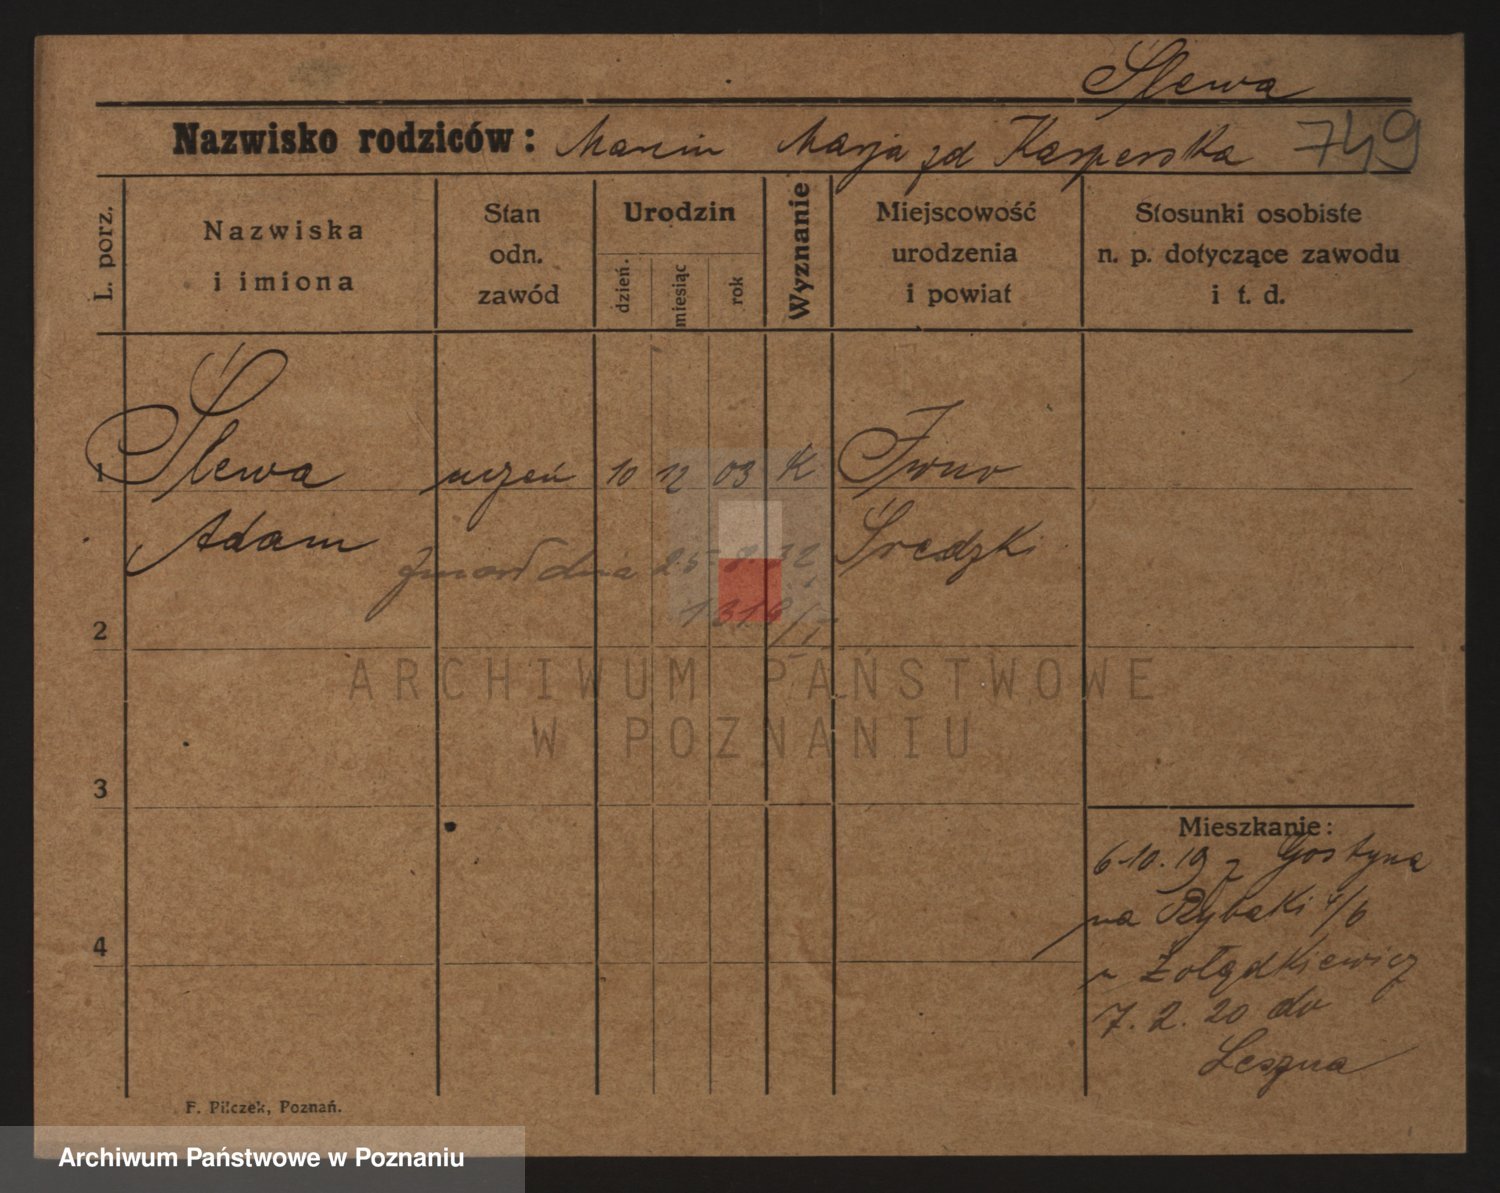 Ślewa
Nazwisko rodziców: Marcin Marja zd Kasperska 749
L. porz.
Nazwiska
i imiona
Stan
odn.
zawód
Urodzin
dzień.
miesiąc
rok
Wyznanie
Miejscowość
urodzenia
i powiat
Stosunki osobiste
n. p. dotyczące zawodu
i t. d.
1 Ślewa uczeń 10 12 03 K Iwno
Adam Średzki
zmarł dnia 25
2
ARCHIWUM PAŃSTWOWE
W POZNANIU
3
Mieszkanie:
6.10.19 z Gostynia
na Rybaki 4/6
4
u Żołądkiewicz
7.2.20 do
Leszna
F. Pilczek, Poznań.
Archiwum Państwowe w Poznaniu